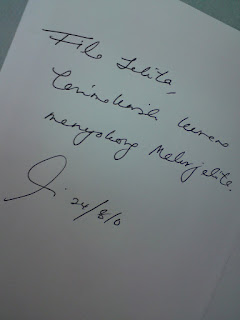 File Jelita,
Terimakasih kerana
menyokong Malurjelita.
24/8/10